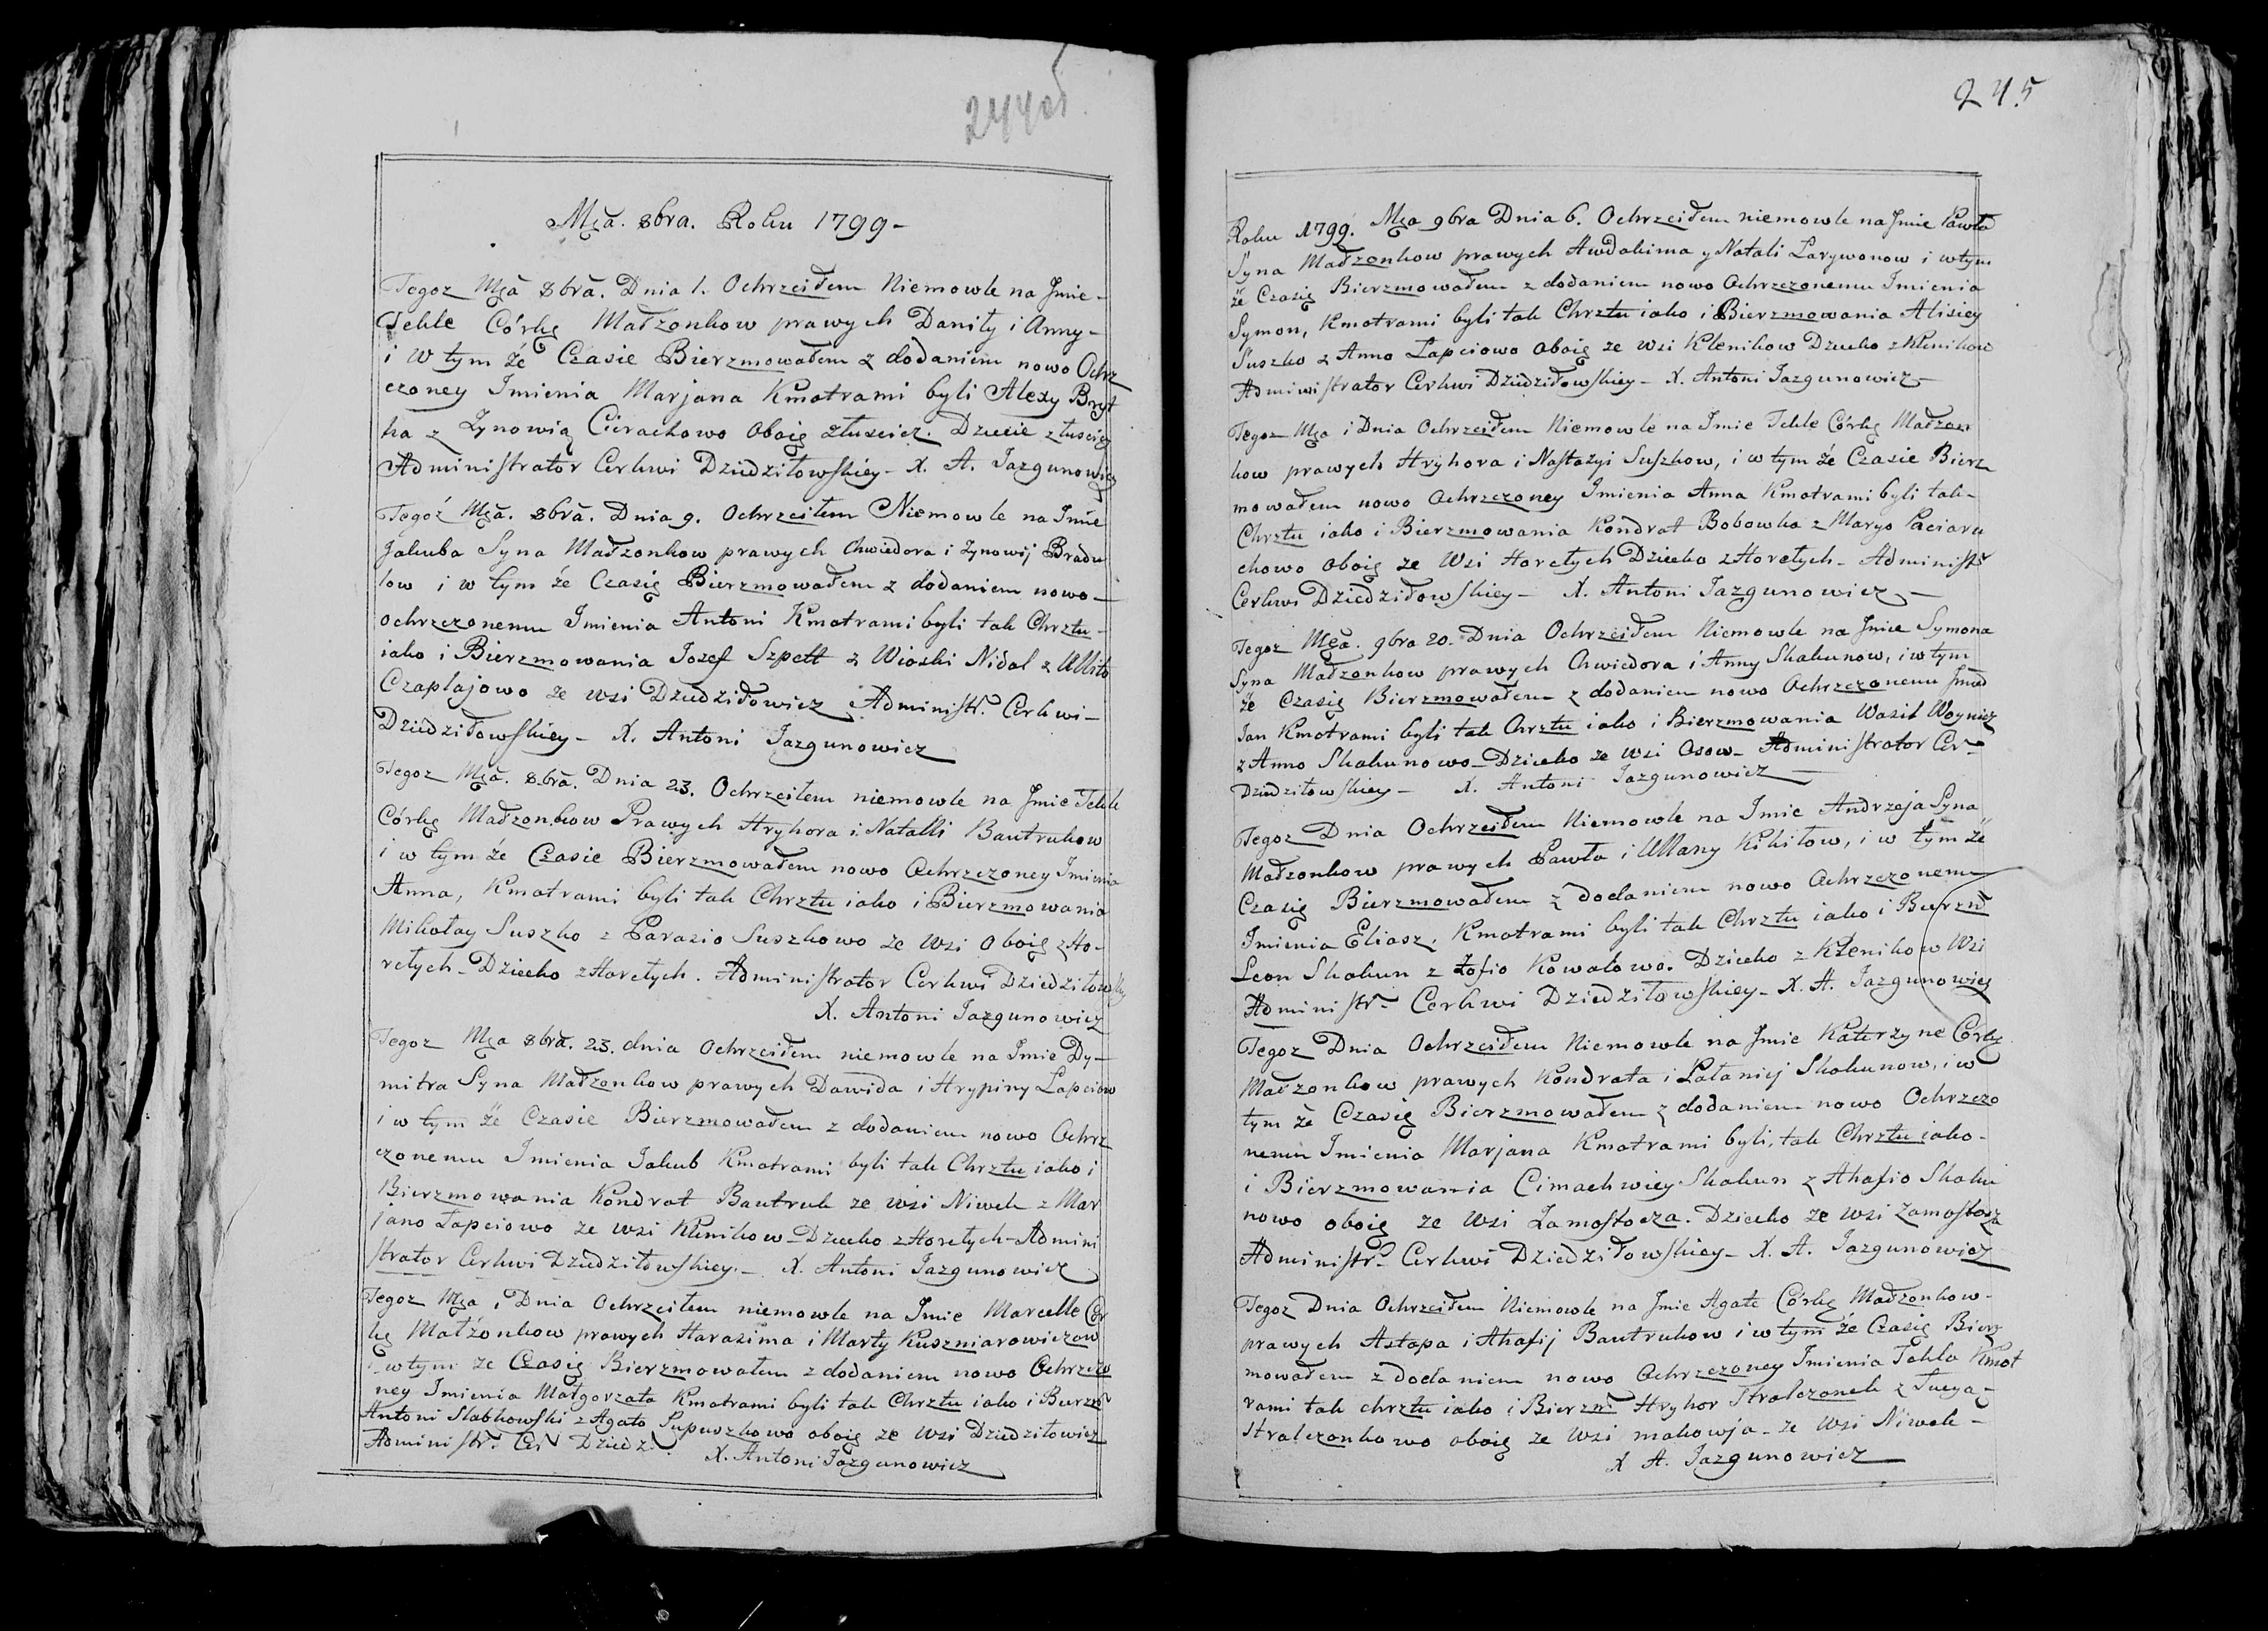 244об.
Mça. 8bra. Roku 1799-
Tegoz Mça 8bra. Dnia 1. Ochrzciłem Niemowle na Jmie-
Tekle Córkę Małzonkow prawych Daniły i Anny-
i w tym że Czasie Bierzmowałem z dodaniem nowo Ochrz
czoney Jmienia Marjana Kmotrami byli Alexy Bryt
ka z Zynowią Cierachowo Oboię złuscicz. Dziecie złuscicz
Administrator Cerkwi Dziedziłowskiey- X. A. Jazgunowicz
Tegoż Mça. 8bra. Dnia 9. Ochrzciłem Niemowle na Jmie
Jakuba Syna Małzonkow prawych Chwiedora i Zynowij Bradu
low i w tym że Czasię Bierzmowałem z dodaniem nowo-
ochrzczonemu Jmienia Antoni Kmotrami byli tak Chrztu-
iako i Bierzmowania Jozef Szpett z Wioski Nidal z Ullito
Czaplajowo ze wsi Dziedziłowicz Administr. Cerkwi-
Dziedziłowskiey- X. Antoni Jazgunowicz
Tegoz Mça. 8.bra. Dnia 23. Ochrzciłem niemowle na Jmie Tekle
Córkę Małzonkow Prawych Hryhora i Natalli Bautrukow
i w tym że Czasie Bierzmowałem nowo Ochrzczoney Jmienia
Anna, Kmotrami byli tak Chrztu iako i Bierzmowania
Mikołay Suszko z Parasio Suszkowo ze wsi Oboię z Ho-
rełych- Dziecko z Horełych. Administrator Cerkwi Dziedziłowskiey
X. Antoni Jazgunowicz
Tegoz Mça 8bra. 23. dnia Ochrzciłem niemowle na Jmie Dy-
mitra Syna Małzonkow prawych Dawida i Hrypiny Lapciow
i w tym że Czasie Bierzmowałem z dodaniem nowo Ochrz
czonemu Jmienia Jakub Kmotrami byli tak Chrztu iako i
Bierzmowania Kondrat Bautruk ze wsi Niwek z Mar
jano Łapciowo ze wsi Klenikow- Dziecko z Horełych- Admini
strator Cerkwi Dziedziłowskiey.- X. Antoni Jazgunowicz
Tegoz Mça i Dnia Ochrzciłem niemowle na Jmie Marcelle Cór
kę Małżonkow prawych Harasima i Marty Kuszniarowiczow
i w tym ze Czasię Bierzmowałem z dodaniem nowo Ochrzczo
ney Jmienia Małgorzata Kmotrami byli tak Chrztu iako i Bierzm
Antoni Słabkowski z Agato Supuszkowo oboię ze wsi Dziedziłowicz
Administr. Cer Dziedz. X. Antoni Jazgunowicz
245
Roku 1799. Mça 9bra Dnia 6. Ochrzciłem niemowle na Jmie Pawła
Syna Małzonkow prawych Awdakima y Natali Larywonow i w tym
że Czasię Bierzmowałem z dodaniem nowo Ochrzczonemu Jmienia
Symon, Kmotrami byli tak Chrztu iako i Bierzmowania Alisiey
Suszko z Anno Lapciowo Oboię ze wsi Klenikow Dziecko z Klenikow
Administrator Cerkwi Dziedziłowskiey- X. Antoni Jazgunowicz-
Tegoz Mça i Dnia Ochrzciłem Niemowle na Jmie Tekle Córkę Małzon
kow prawych Hryhora i Nastazyi Suszkow, i w tym że Czasie Bierz
mowałem nowo Ochrzczoney Jmienia Anna Kmotrami byli tak-
Chrztu iako i Bierzmowania Kondrat Bobowka z Maryo Paciaru
chowo oboię ze Wsi Horełych Dziecko z Horełych- Administr
Cerkwi Dziedziłowskiey- X. Antoni Jazgunowicz-
Tegoz Mça. 9bra 20. Dnia Ochrzciłem Niemowle na Jmie Symona
Syna Małzonkow prawych Chwiedora i Anny Skakunow, i w tym
że Czasię Bierzmowałem z dodaniem nowo Ochrzczonemu Jmie
Jan Kmotrami byli tak Chrztu iako i Bierzmowania Wasil Woynicz
z Anno Skakunowo- Dziecko ze wsi Osow- Administrator Cer-
Dziedziłowskiey- X. Antoni Jazgunowicz-
Tegoz Dnia Ochrzciłem Niemowle na Jmie Andrzeja Syna
Małzonkow prawych Pawła i Ullany Kikiłow, i w tym że
Czasię Bierzmowałem z dodaniem nowo Ochrzczonemu
Jmienia Eliasz, Kmotrami byli tak Chrztu iako i Bierzm
Leon Skakun z Zofio Kowalowo. Dziecko z Klenikow Wsi
Administr- Cerkwi Dziedziłowskiey- X. A. Jazgunowicz
Tegoz Dnia Ochrzciłem Niemowle na Jmie Katerzyne Córkę
Małzonkow prawych Kondrata i Pałanij Skakunow, i w
tym że Czasię Bierzmowałem z dodaniem nowo Ochrzczo
nemu Jmienia Marjana Kmotrami byli, tak Chrztu iako-
i Bierzmowania Cimachwiey Skakun z Ahafio Skaku
nowo oboię ze Wsi Zamostocza. Dziecko ze wsi Zamostocza
Administr- Cerkwi Dziedziłowskiey- X. A. Jazgunowicz
Tegoz Dnia Ochrzciłem Niemowle na Jmie Agate Córkę Małzonkow-
prawych Astapa i Ahafij Bautrukow i w tym że Czasię Bierz
mowałem z dodaniem nowo Ochrzczoney Jmienia Tekla Kmot
rami tak chrztu iako i Bierzm Hryhor Stralczonek z
Stralczonkowo oboię ze wsi makowja- ze wsi Niwek-
X A. Jazgunowicz